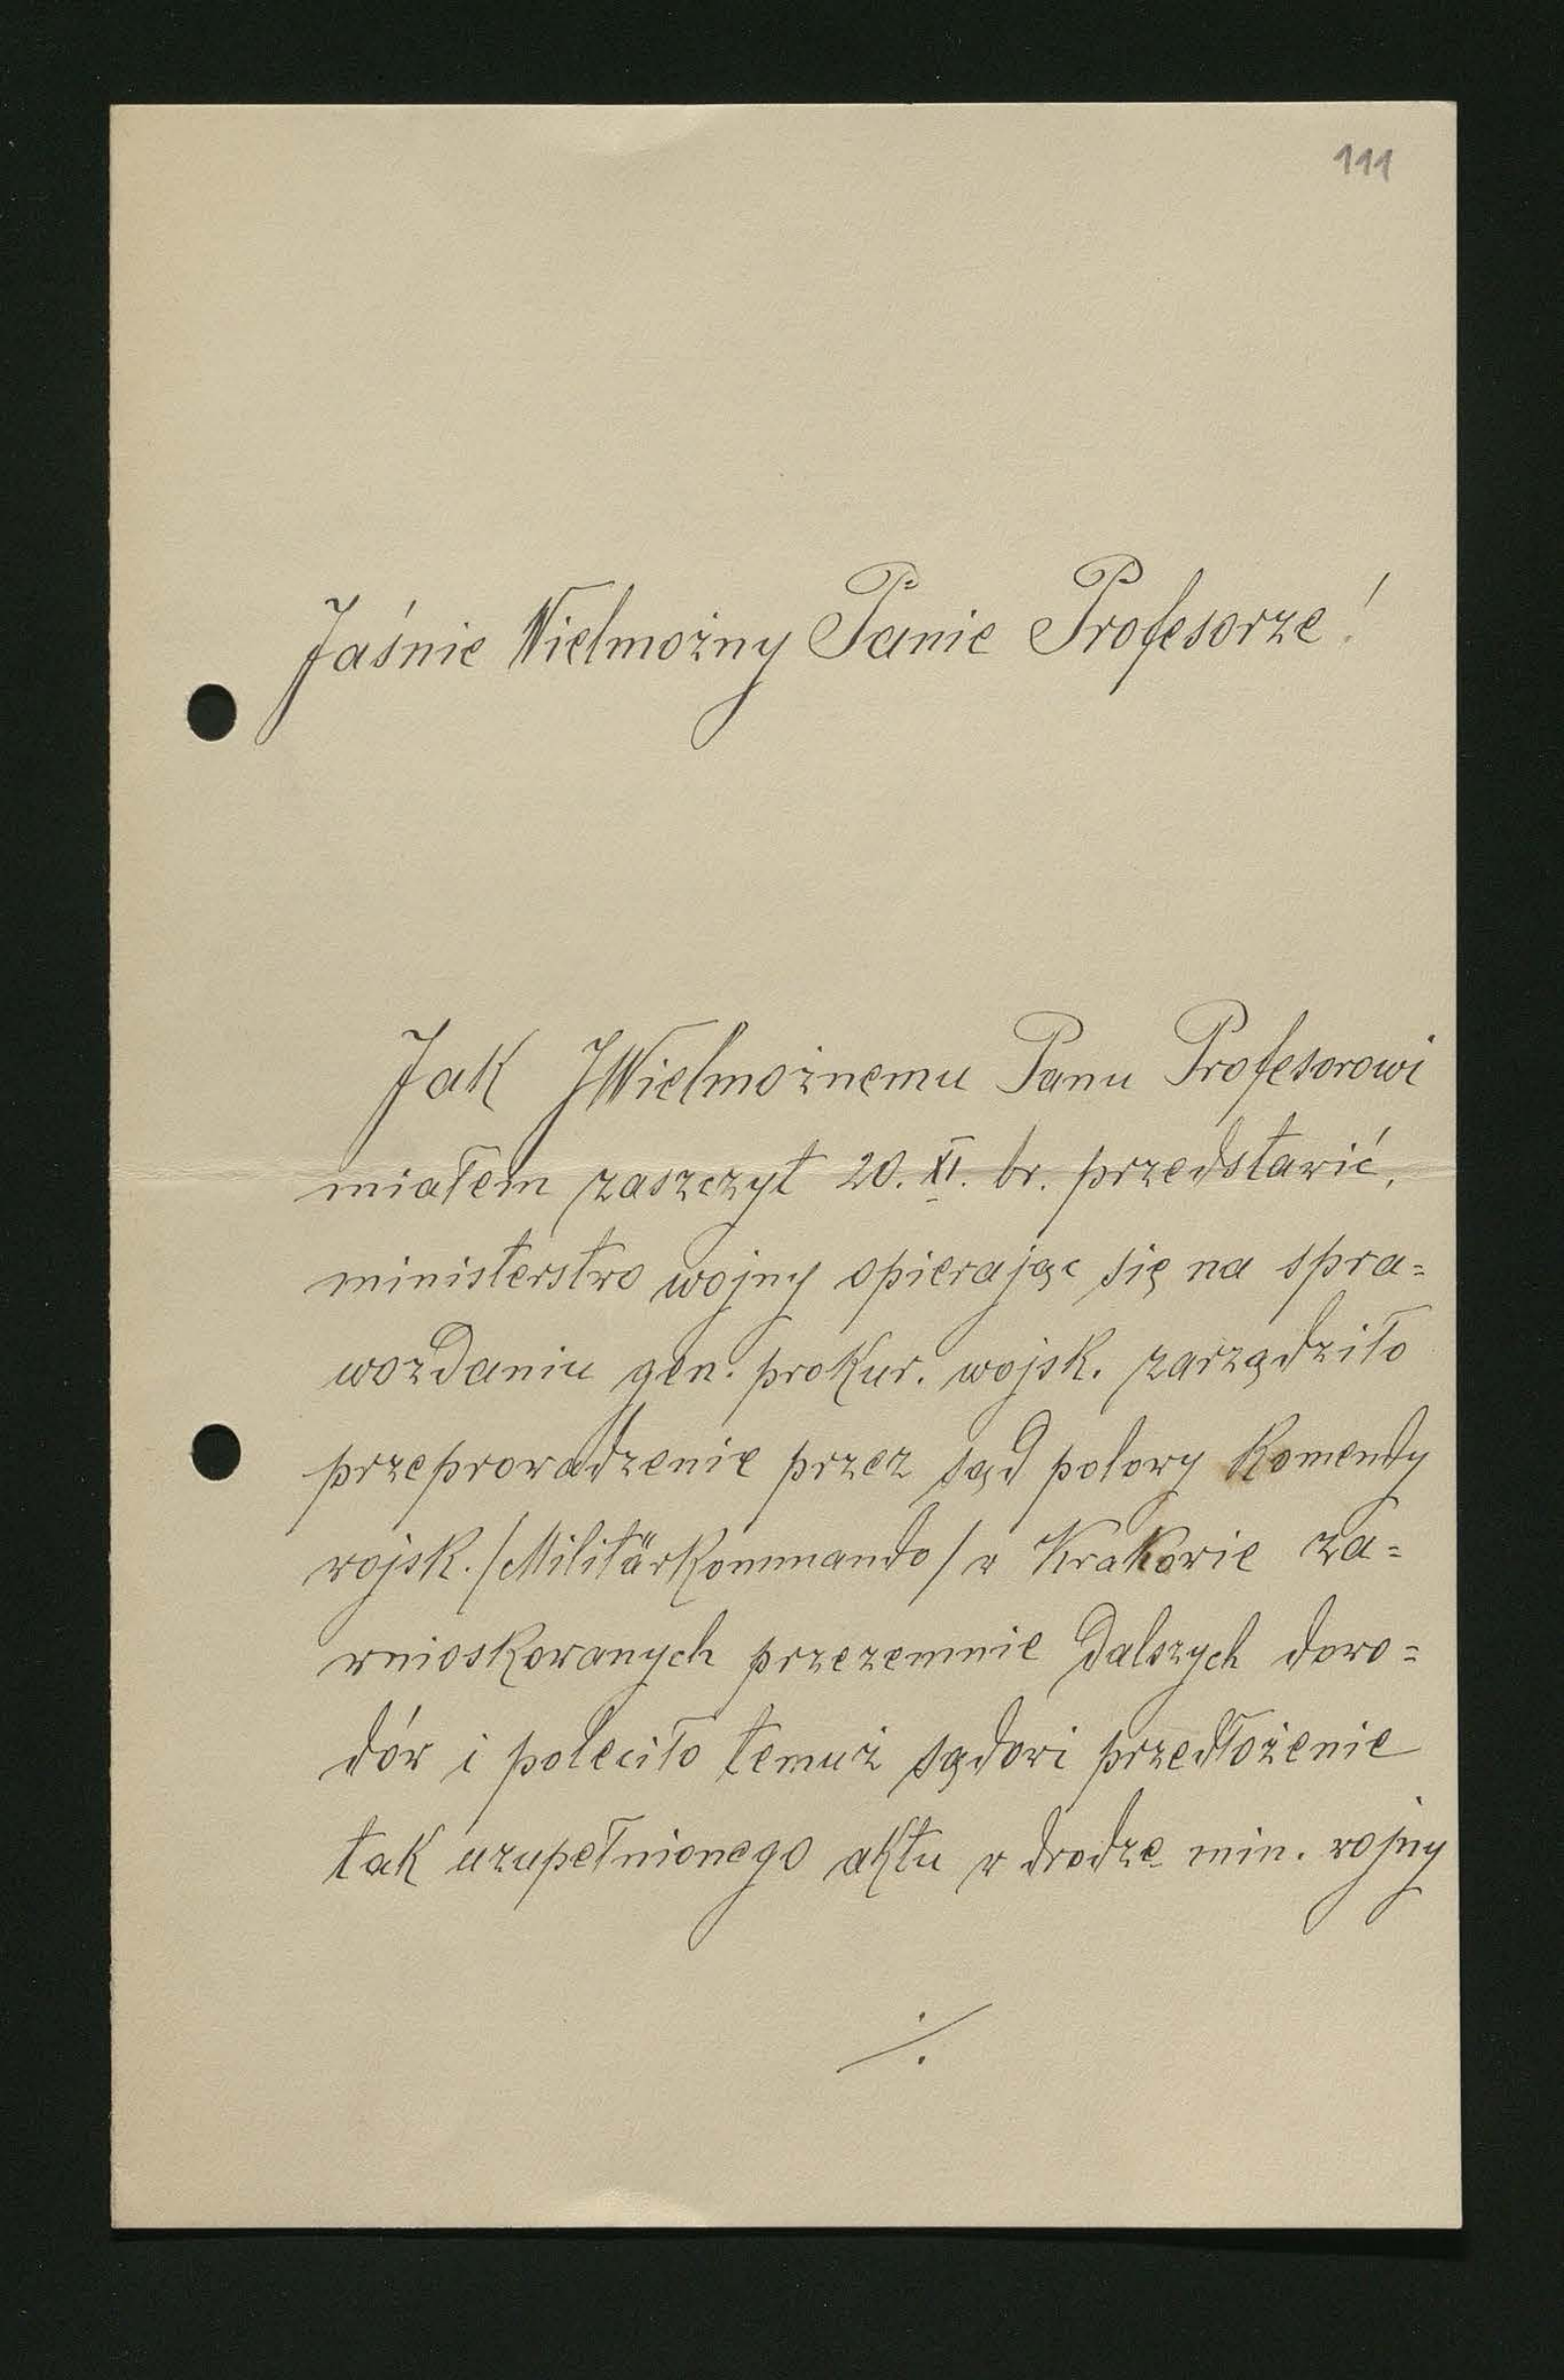 111
Jaśnie Wielmożny Panie Profesorze!
Jak JWielmożnemu Panu Profesorowi
miałem zaszczyt 20. XI. br. przedstawić,
ministerstwo wojny opierając się na spra=
wozdaniu gen. prokur. wojsk. zarządziło
przeprowadzenie przez sąd polowy Komendy
wojsk. /Militärkommando/ w Krakowie za=
wnioskowanych przezemnie dalszych dowo=
dów i poleciło temuż sądowi przedłożenie
tak uzupełnionego aktu w drodze min. wojny
./.